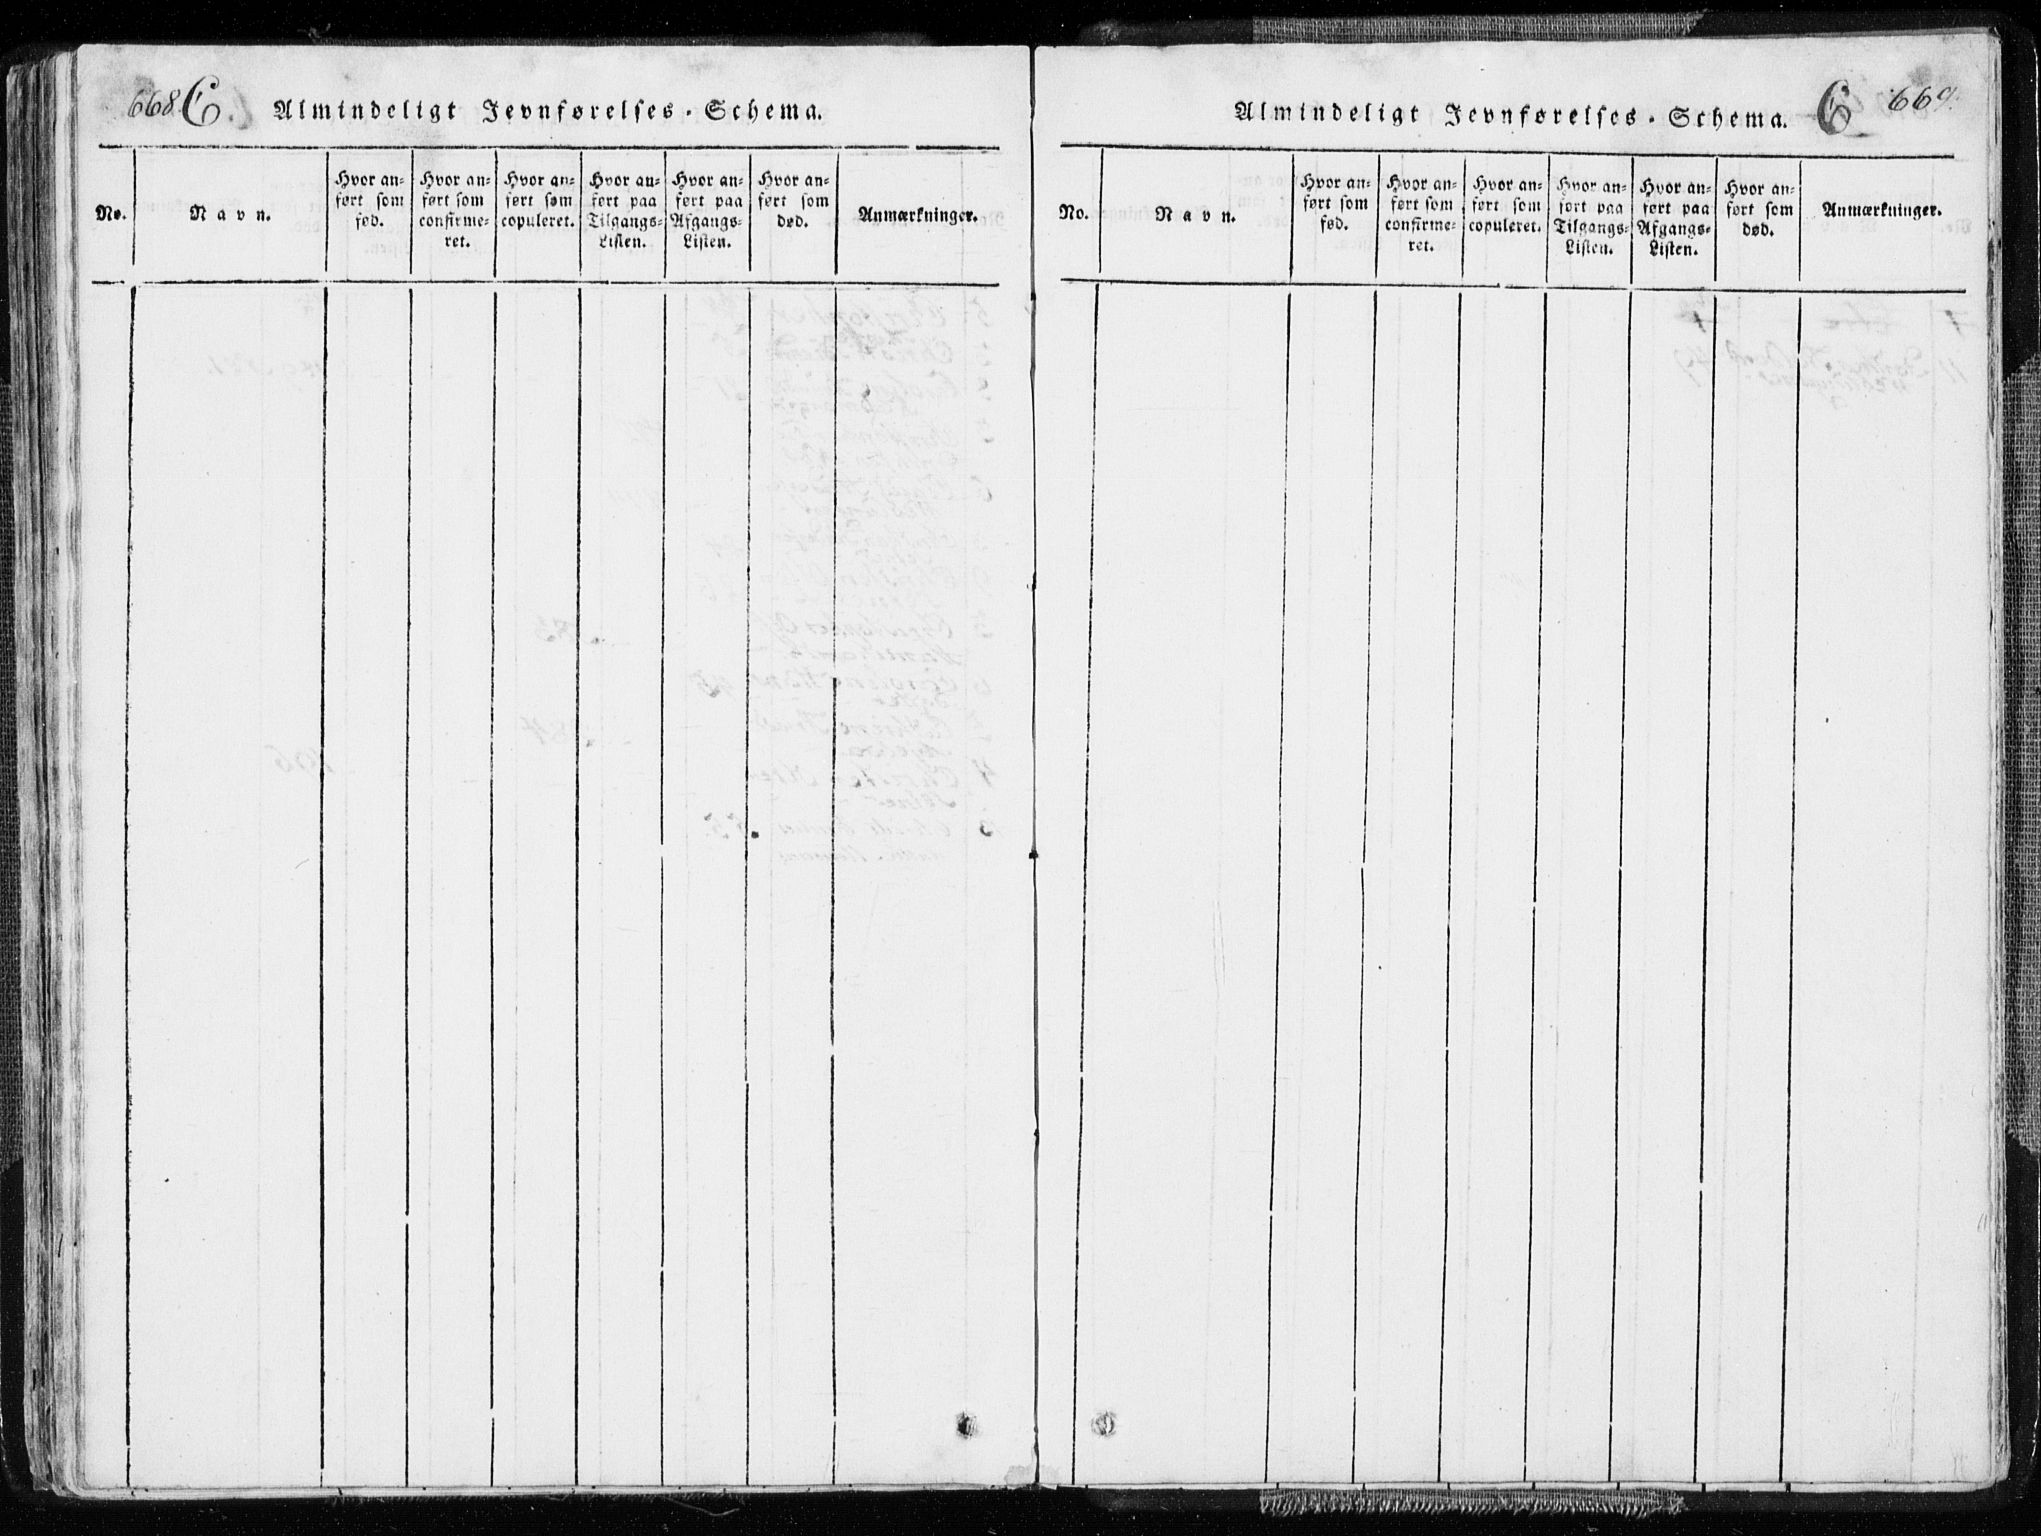 668. C. Almindeligt Jevnførelses-Schema.
No.
Navn.
Hvor an-
ført som
fød.
Hvor an-
ført som
confirme-
ret.
Hvor an-
ført som
copuleret.
Hvor an-
ført paa
Tilgangs-
Listen.
Hvor an-
ført paa
Afgangs-
Listen.
Hvor an-
ført som
død.
Anmærkninger.
Almindeligt Jevnførelses-Schema. C 669.
No.
Navn.
Hvor an-
ført som
fød.
Hvor an-
ført som
confirme-
ret.
Hvor an-
ført som
copuleret.
Hvor an-
ført paa
Tilgangs-
Listen.
Hvor an-
ført paa
Afgangs-
Listen.
Hvor an-
ført som
død.
Anmærkninger.